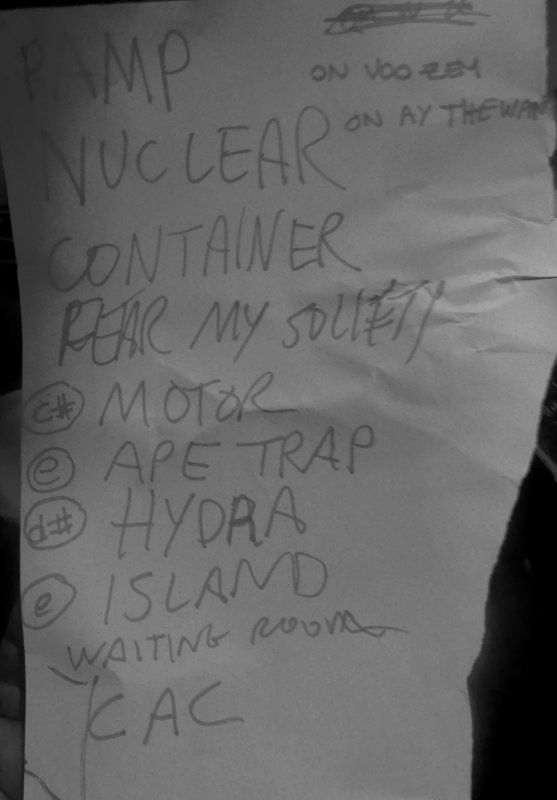 RAMP
ON VOO-ZEM
ON AY THE WAM
NUCLEAR
CONTAINER
FEAR MY SOCIETY
c# MOTOR
e APE TRAP
d# HYDRA
e ISLAND
WAITING ROOM
CAC